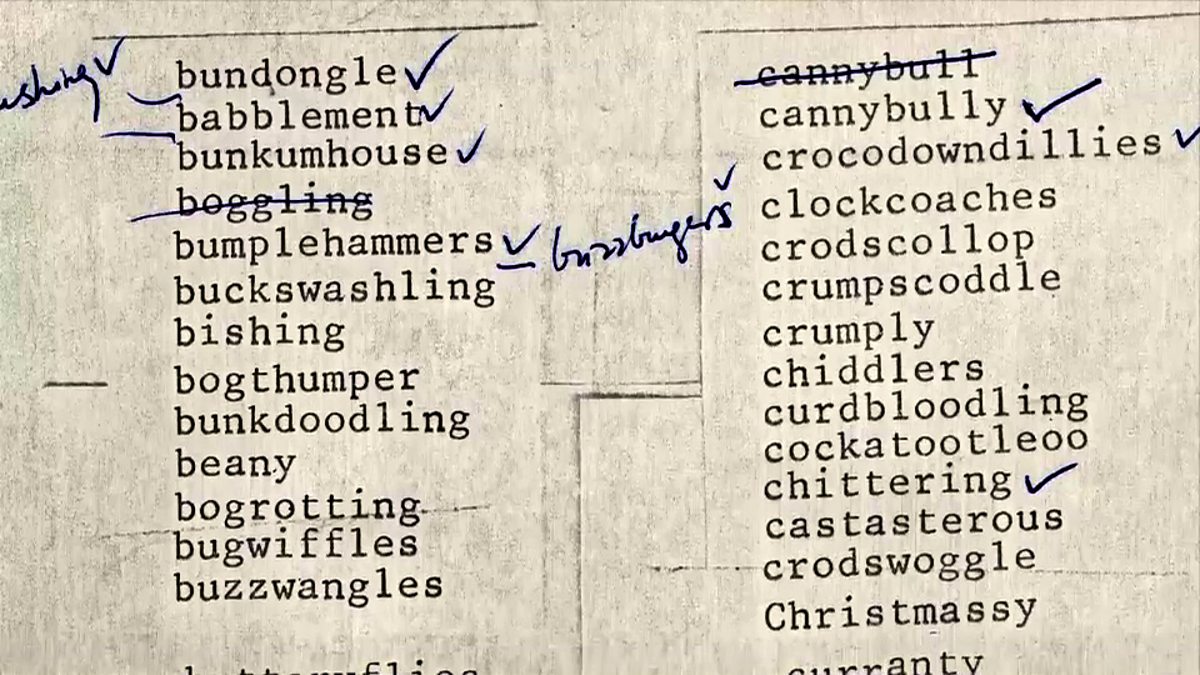 bundongle
babblement
bunkumhouse
boggling
bumplehammers
buzzbungers
buckswashling
bishing
bogthumper
bunkdoodling
beany
bogrotting
bugwiffles
buzzwangles
cannybull
cannybully
crocodowndillies
clockcoaches
crodscollop
crumpscoddle
crumply
chiddlers
curdbloodling
cockatootleoo
chittering
castasterous
crodswoggle
Christmassy
curranty